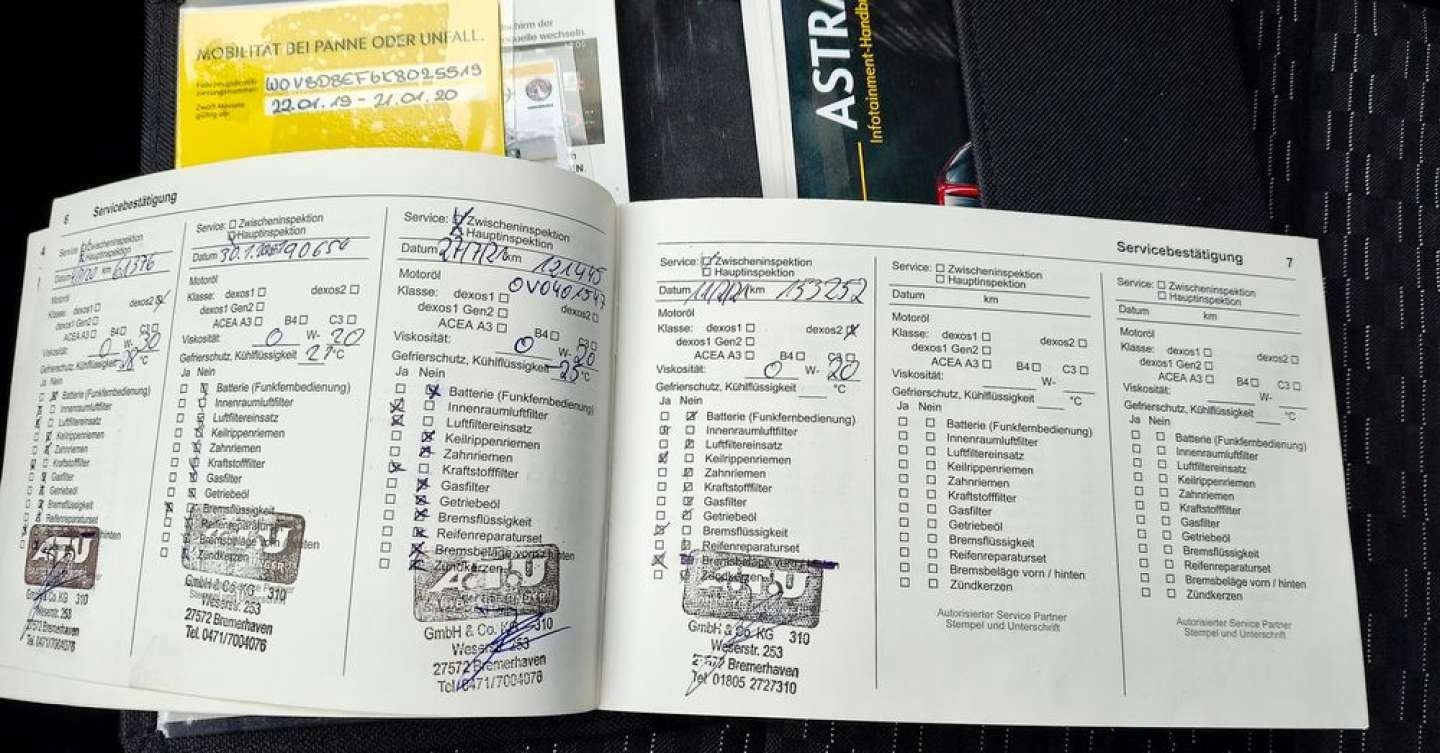 MOBILITÄT BEI PANNE ODER UNFALL.
22.01.19 - 21.01.20
ASTRA
Infotainment-Handb
6 Servicebestätigung
4
Service: Zwischeninspektion
Hauptinspektion
Datum km 61376
Motoröl
Klasse: dexos1 dexos2
dexos1 Gen2
ACEA A3 B4 C3
Viskosität: 0 W- 30
Gefrierschutz, Kühlflüssigkeit °C
Ja Nein
Batterie (Funkfernbedienung)
Innenraumluftfilter
Luftfiltereinsatz
Keilrippenriemen
Zahnriemen
Kraftstofffilter
Gasfilter
Getriebeöl
Bremsflüssigkeit
Reifenreparaturset
hinten
Co KG 310
Weserstr. 253
27572 Bremerhaven
Tel. 0471/7004076
Service: Zwischeninspektion
Hauptinspektion
Datum 90650
Motoröl
Klasse: dexos1 dexos2
dexos1 Gen2
ACEA A3 B4 C3
Viskosität: 0 W- 20
Gefrierschutz, Kühlflüssigkeit 27 °C
Ja Nein
Batterie (Funkfernbedienung)
Innenraumluftfilter
Luftfiltereinsatz
Keilrippenriemen
Zahnriemen
Kraftstofffilter
Gasfilter
Getriebeöl
Bremsflüssigkeit
Reifenreparaturset
Bremsbeläge vorn / hinten
Zündkerzen
GmbH & Co. KG 310
Weserstr. 253
27572 Bremerhaven
Tel. 0471/7004076
Service: Zwischeninspektion
Hauptinspektion
Datum km 121445
Motoröl OV0401547
Klasse: dexos1 dexos2
dexos1 Gen2
ACEA A3 B4 C3
Viskosität: 0 W- 20
Gefrierschutz, Kühlflüssigkeit -25 °C
Ja Nein
Batterie (Funkfernbedienung)
Innenraumluftfilter
Luftfiltereinsatz
Keilrippenriemen
Zahnriemen
Kraftstofffilter
Gasfilter
Getriebeöl
Bremsflüssigkeit
Reifenreparaturset
Bremsbeläge vorn / hinten
Zündkerzen
A.T.U
GmbH & Co. KG 310
Weserstr. 253
27572 Bremerhaven
Tel. 0471/7004076
Servicebestätigung 7
Service: Zwischeninspektion
Hauptinspektion
Datum km 153252
Motoröl
Klasse: dexos1 dexos2
dexos1 Gen2
ACEA A3 B4 C3
Viskosität: 0 W- 20
Gefrierschutz, Kühlflüssigkeit °C
Ja Nein
Batterie (Funkfernbedienung)
Innenraumluftfilter
Luftfiltereinsatz
Keilrippenriemen
Zahnriemen
Kraftstofffilter
Gasfilter
Getriebeöl
Bremsflüssigkeit
Reifenreparaturset
Bremsbeläge vorn /
Zündkerzen
A.T.U
GmbH & Co. KG 310
Weserstr. 253
27572 Bremerhaven
Tel 01805 2727310
Service: Zwischeninspektion
Hauptinspektion
Datum km
Motoröl
Klasse: dexos1 dexos2
dexos1 Gen2
ACEA A3 B4 C3
Viskosität: W-
Gefrierschutz, Kühlflüssigkeit °C
Ja Nein
Batterie (Funkfernbedienung)
Innenraumluftfilter
Luftfiltereinsatz
Keilrippenriemen
Zahnriemen
Kraftstofffilter
Gasfilter
Getriebeöl
Bremsflüssigkeit
Reifenreparaturset
Bremsbeläge vorn / hinten
Zündkerzen
Autorisierter Service Partner
Stempel und Unterschrift
Service: Zwischeninspektion
Hauptinspektion
Datum km
Motoröl
Klasse: dexos1 dexos2
dexos1 Gen2
ACEA A3 B4 C3
Viskosität: W-
Gefrierschutz, Kühlflüssigkeit °C
Ja Nein
Batterie (Funkfernbedienung)
Innenraumluftfilter
Luftfiltereinsatz
Keilrippenriemen
Zahnriemen
Kraftstofffilter
Gasfilter
Getriebeöl
Bremsflüssigkeit
Reifenreparaturset
Bremsbeläge vorn / hinten
Zündkerzen
Autorisierter Service Partner
Stempel und Unterschrift